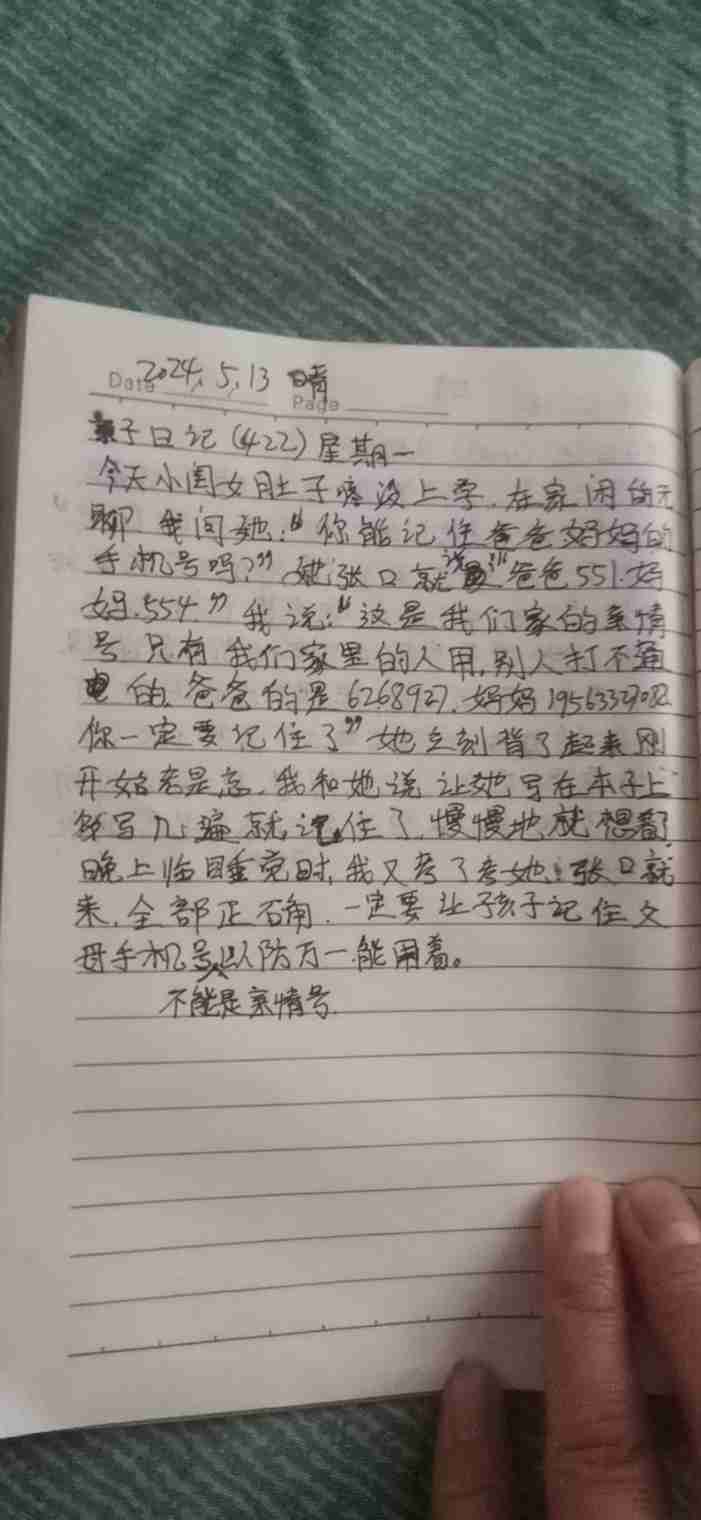 Date 2024.5.13 晴
Page
亲子日记(422)星期一
今天小闺女肚子疼没上学.在家闲的无
聊 我问她:“你能记住爸爸妈妈的
手机号吗?”她张口就说“爸爸551.妈
妈.554”我说:“这是我们家的亲情
号 只有我们家里的人用,别人打不通
的.爸爸的是6268927.妈妈
你一定要记住了”她立刻背了起来刚
开始老是忘.我和她说让她写在本子上
多写几遍就记住了.慢慢地就
晚上临睡觉时,我又考了考她.张口就
来.全部正确.一定要让孩子记住父
母手机号,以防万一.能用着。
不能是亲情号.